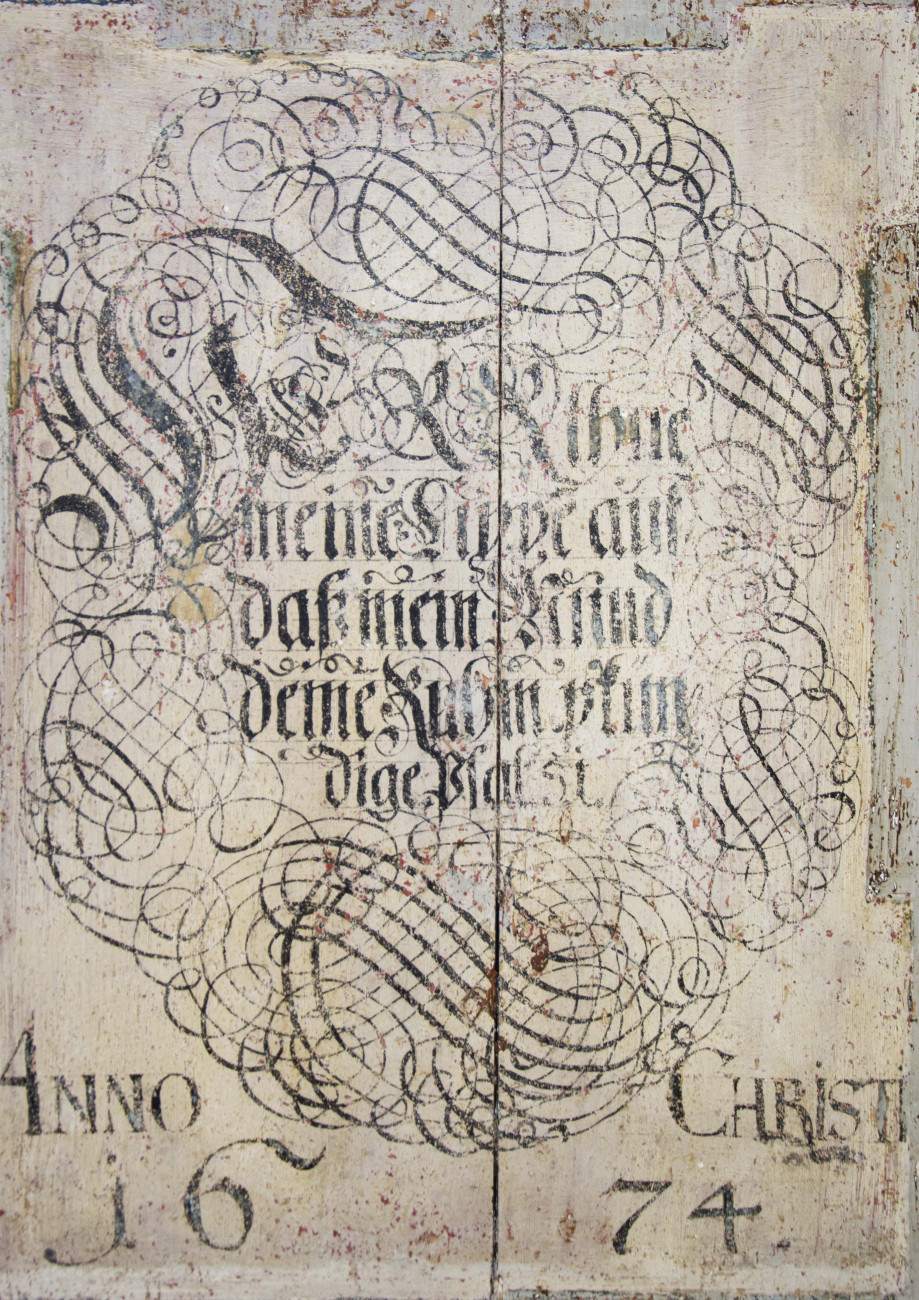 HERR thue
meine Lippe auf
daß mein Mund
deine Ruhm vkün
dige Psal. 51.
ANNO CHRISTI
1674.